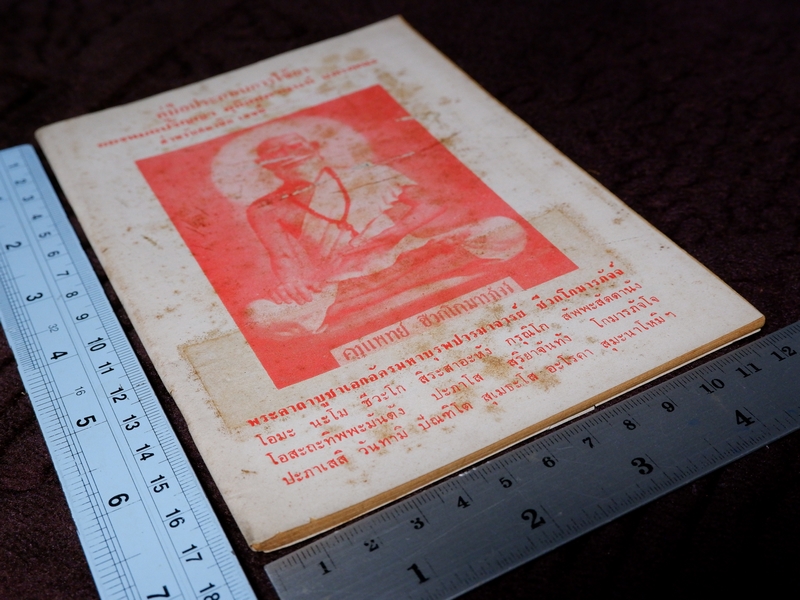 ครูแพทย์ ชีวกโกมารภัจจ์
พระคาถาบูชาเอกอัครมหาบรมปรมาจารย์ ชีวกโกมารภัจจ์
โอมะ นะโม ชีวะโก สิระสาอะหัง กรุณิโก สัพพะสัตตานัง
โอสะถะทิพพะมันตัง ปะภาโส สุริยาจันทัง โกมารภัจโจ
ปะภาเสสิ วันทามิ บัณฑิโต สุเมธะโส อะโรคา สุมะนาโหมิๆ
1 2 3 4 5 6 7 8 9 10 11 12 13 14 15 16 17 18
2 3 4 5 6 7
16
1 2 3 4 5 6 7 8 9 10 11 12
1 2 3 4